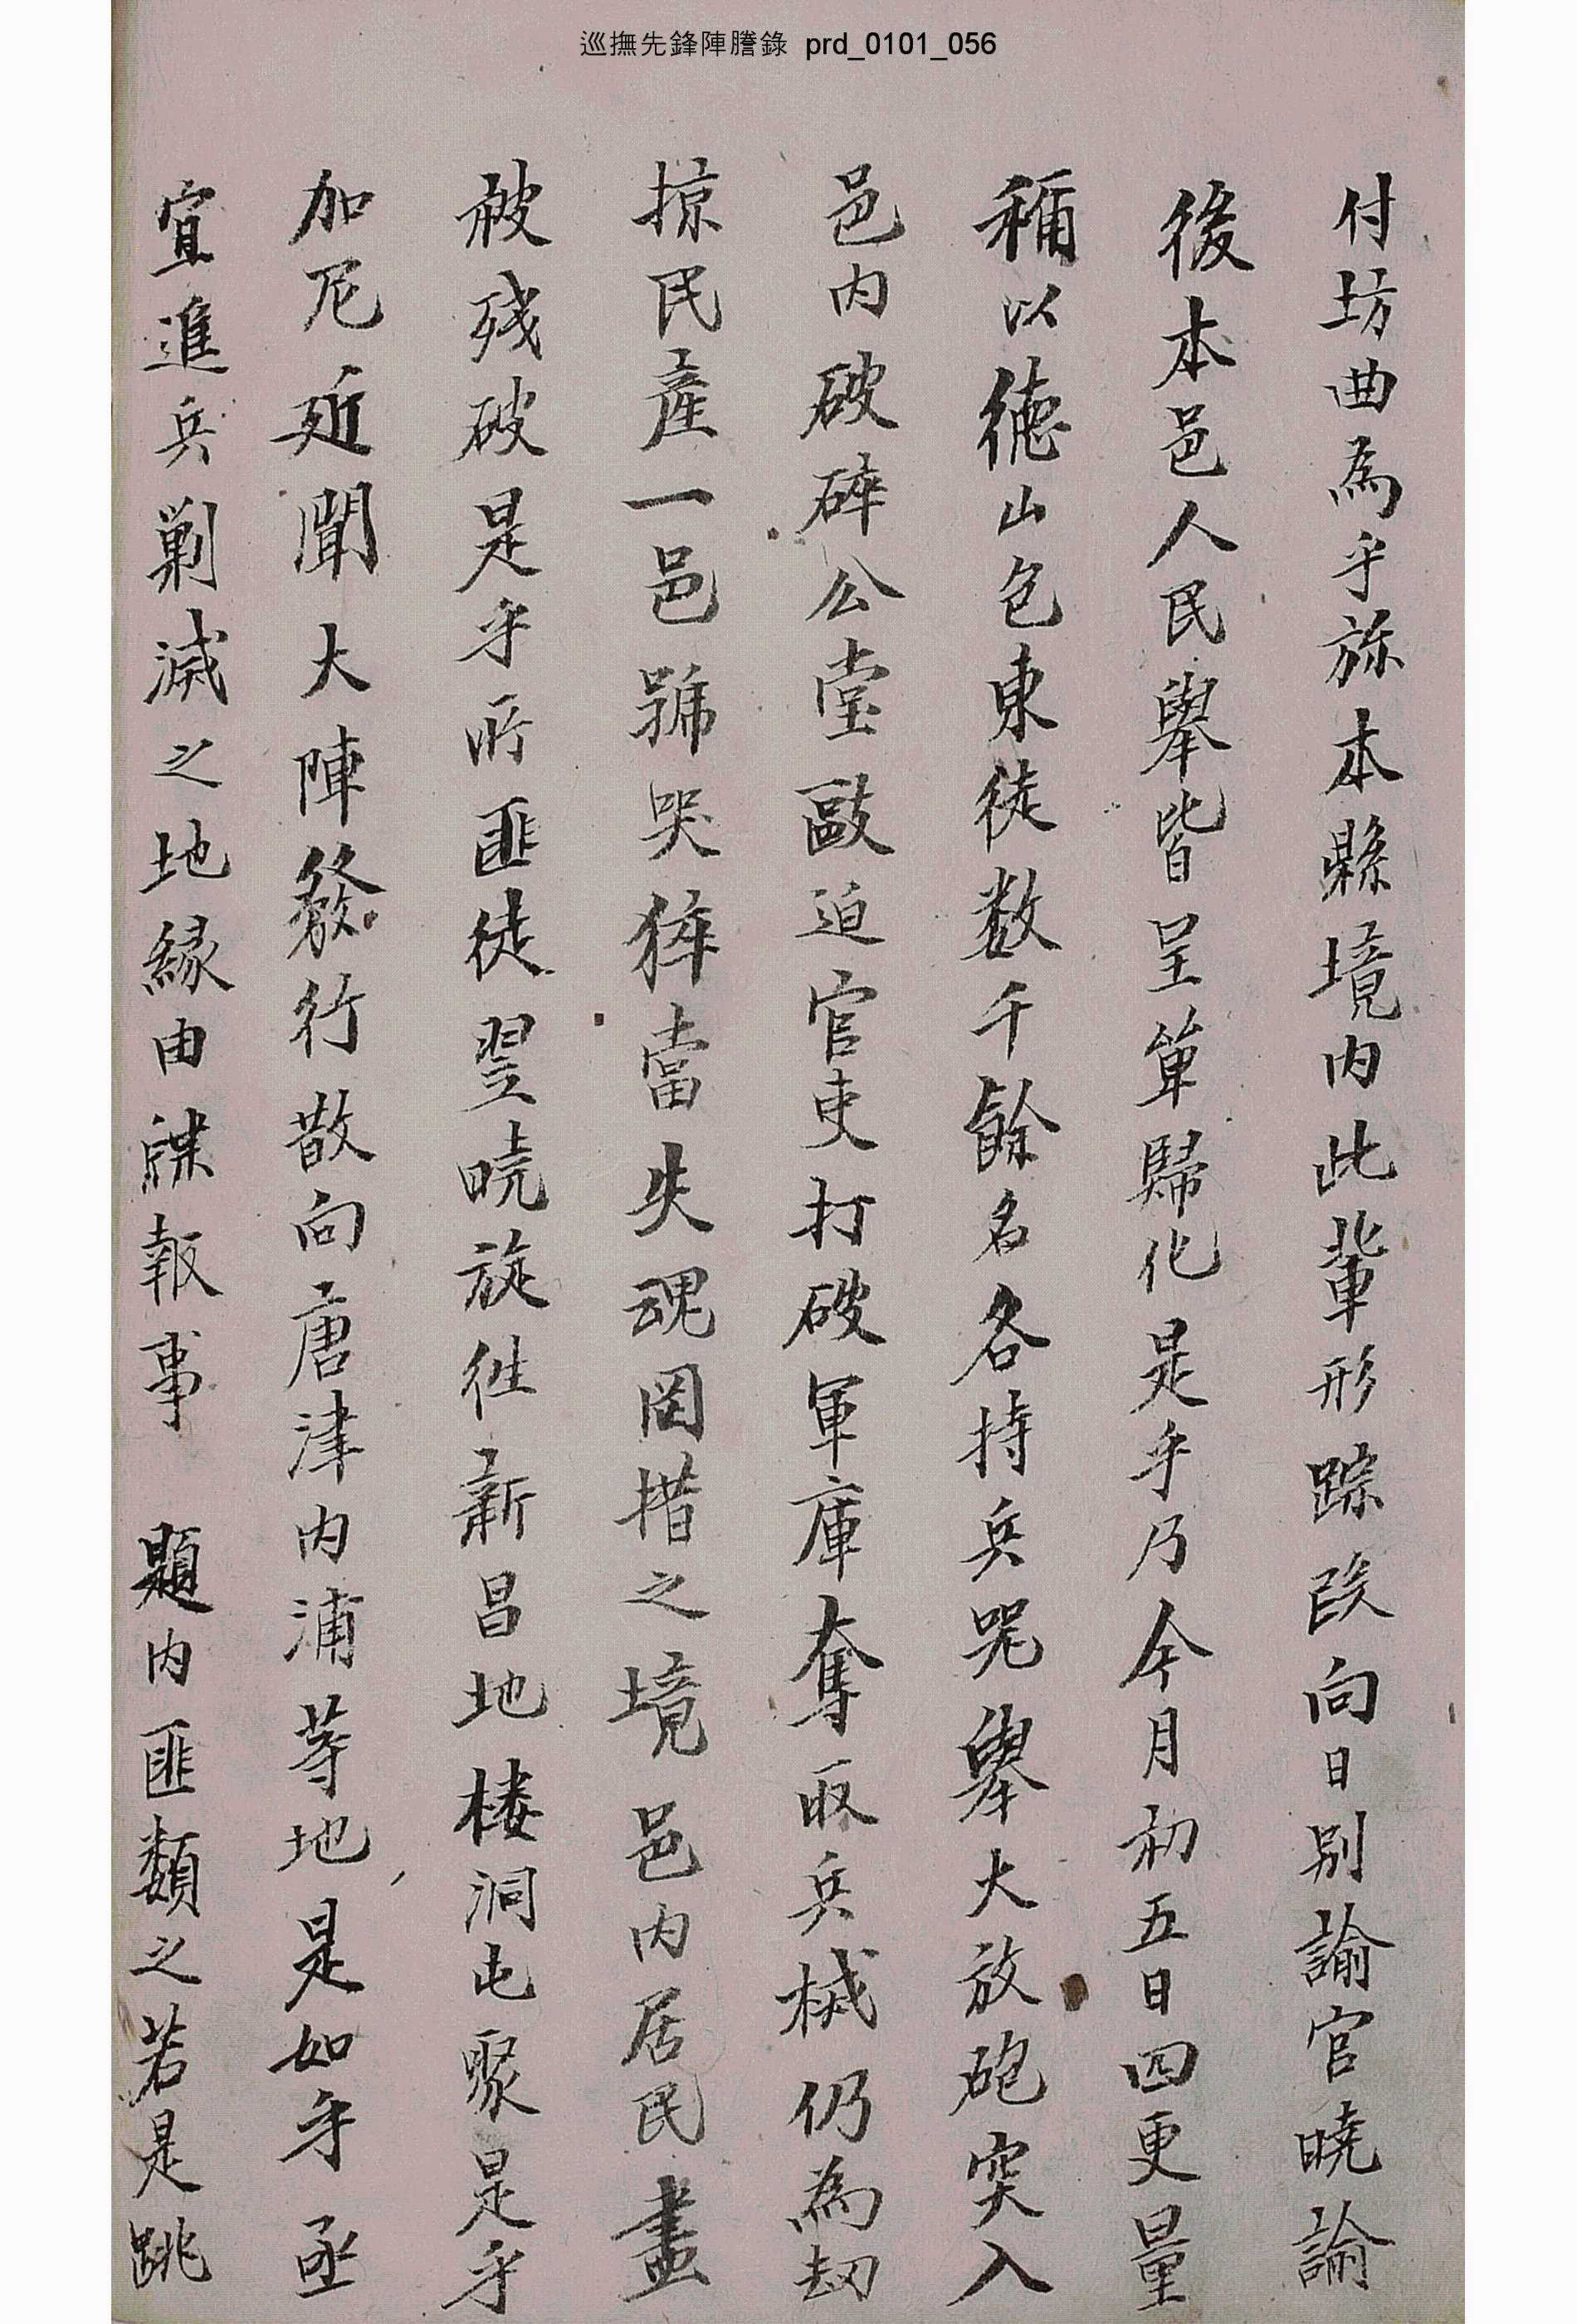 巡撫先鋒陣謄錄 prd_0101_056
付坊曲為乎旀本縣境內此輩形踪段向日別諭官曉諭
後本邑人民擧皆呈單歸化是乎乃今月初五日四更量
稱以德山包東徒数千餘名各持兵器擧大放砲突入
邑內破碎公堂敺迫官吏打破軍庫奪取兵械仍為刼
掠民産一邑號哭猝當失魂罔措之境邑內居民盡
被殘破是乎所匪徒翌曉旋徃新昌地棲洞屯聚是乎
加尼近聞大陣發行散向唐津內浦等地是如乎亟
宜進兵剿滅之地緣由牒報事 題內匪類之若是跳